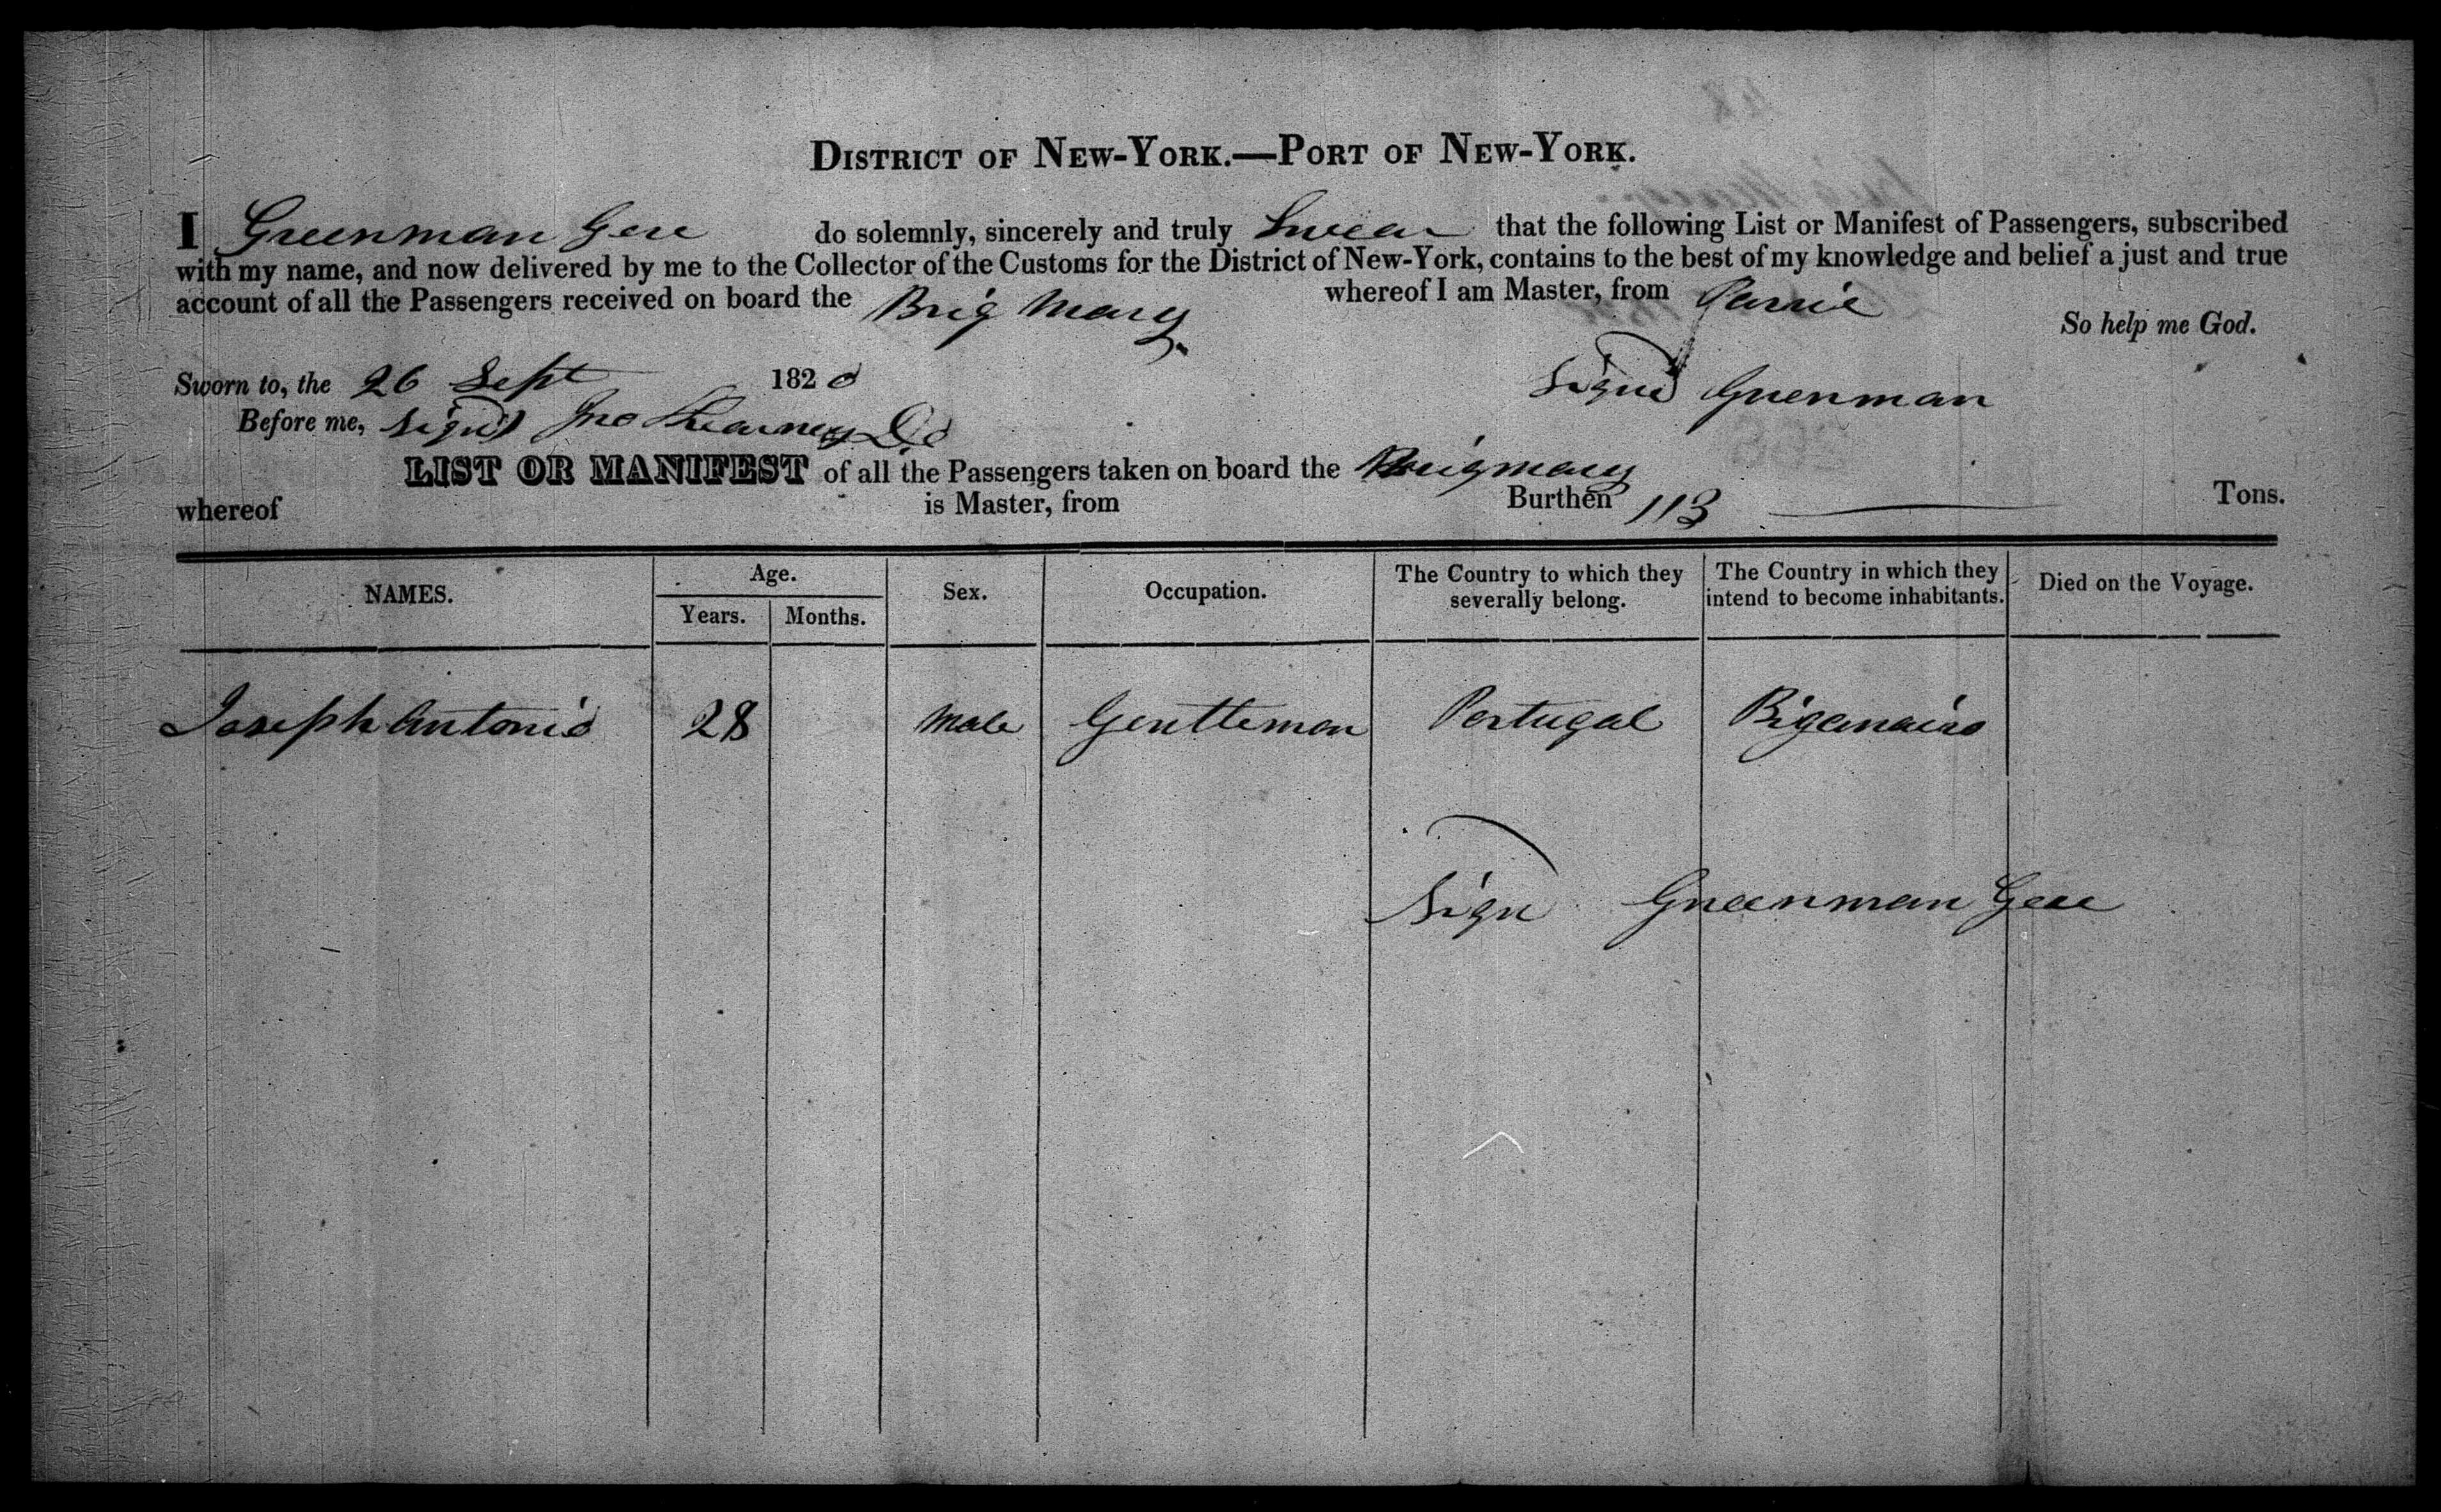 DISTRICT OF NEW-YORK.—PORT OF NEW-YORK.
I Greenman Gere do solemnly, sincerely and truly Swear that the following List or Manifest of Passengers, subscribed
with my name, and now delivered by me to the Collector of the Customs for the District of New-York, contains to the best of my knowledge and belief a just and true
account of all the Passengers received on board the Brig Mary whereof I am Master, from
So help me God.
Sworn to, the 26 Sept 1820
Signd Greenman
Before me, Signd Jno Kearney
LIST OR MANIFEST of all the Passengers taken on board the Brig mary
whereof is Master, from Burthen 113 Tons.
NAMES. Age. Years. Months. Sex. Occupation. The Country to which they severally belong. The Country in which they intend to become inhabitants. Died on the Voyage.
Joseph Antonio 28 Male Gentleman Portugal
Sign Greenman Gere